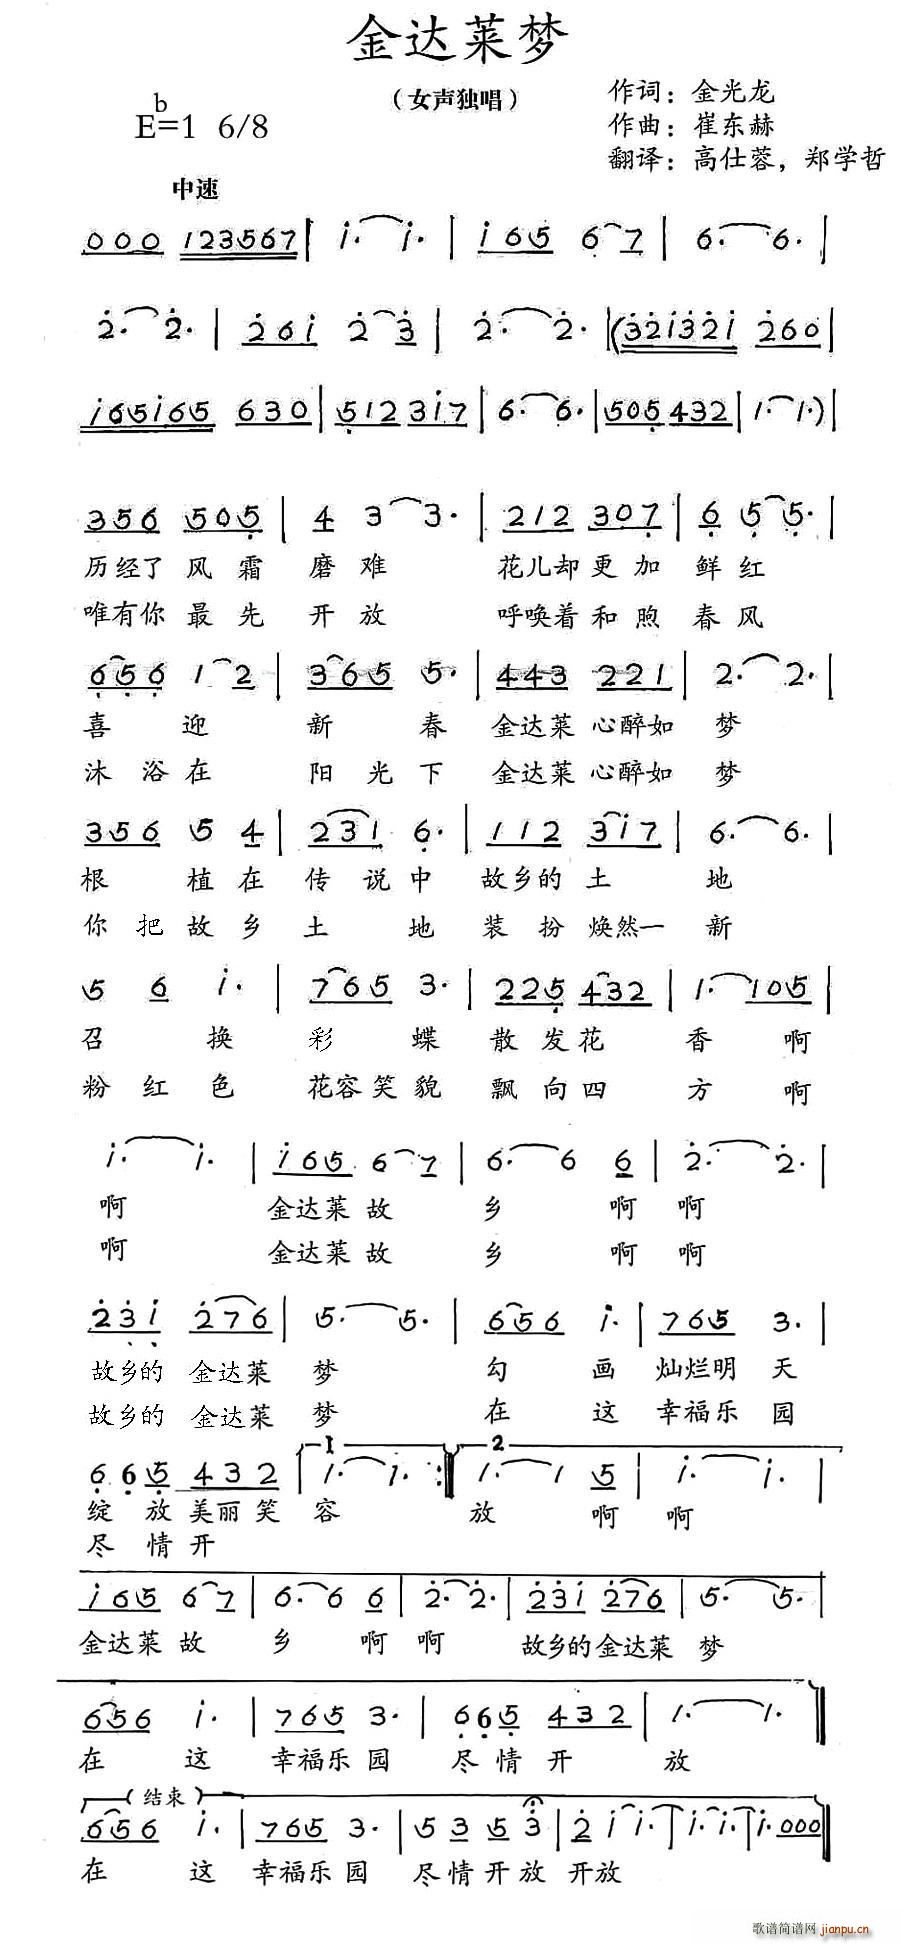 金达莱梦
（女声独唱）
作词：金光龙
bE=1 6/8
作曲：崔东赫
翻译：高仕蓉，郑学哲
中速
000 1235567 | i· i· | i65 6 7 | 6· 6· |
2· 2· | 26i 2 3 | 2· 2· | (32i32i 260 |
i65i65 630 | 512 3i7 | 6· 6· | 505 432 | 1· 1·) |
356 505 | 4 3 3· | 212 307 | 6 5 5· |
历经了 风霜 磨难 花儿却更加 鲜红
唯有你 最先 开放 呼唤着和煦 春风
656 1 2 | 365 5· | 443 221 | 2· 2· |
喜 迎 新 春 金达莱 心醉如 梦
沐浴在 阳光下 金达莱 心醉如 梦
356 5 4 | 231 6· | 112 3i7 | 6· 6· |
根 植在 传说中 故乡的 土 地
你把故乡 土 地 装扮焕然一 新
5 6 i· | 765 3· | 225 432 | 1· 105 |
召 换 彩 蝶 散发花 香 啊
粉红色 花容笑貌 飘向四 方 啊
i· i· | i65 6 7 | 6· 6 6 | 2· 2· |
啊 金达莱故 乡 啊 啊
啊 金达莱故 乡 啊 啊
23i 276 | 5· 5· | 656 i· | 765 3· |
故乡的 金达莱 梦 勾 画 灿烂明 天
故乡的 金达莱 梦 在 这 幸福乐 园
1 2
6 6 5 432 | 1· 1· :‖ 1· 1 5 | i· i· |
绽 放美丽笑 容 放 啊 啊
尽 情开
i65 6 7 | 6· 6 6 | 2· 2· | 23i 276 | 5· 5· |
金达莱故 乡 啊 啊 故乡的金达莱 梦
656 i· | 765 3· | 6 6 5 432 | 1· 1· ‖
在 这 幸福乐园 尽情开 放
（结束）
656 i· | 765 3· | 5 3 5 3· | 2 i i· | i· i· | i· 000 ‖
在 这 幸福乐园 尽情开放 开放
歌谱简谱网 jianpu.cn